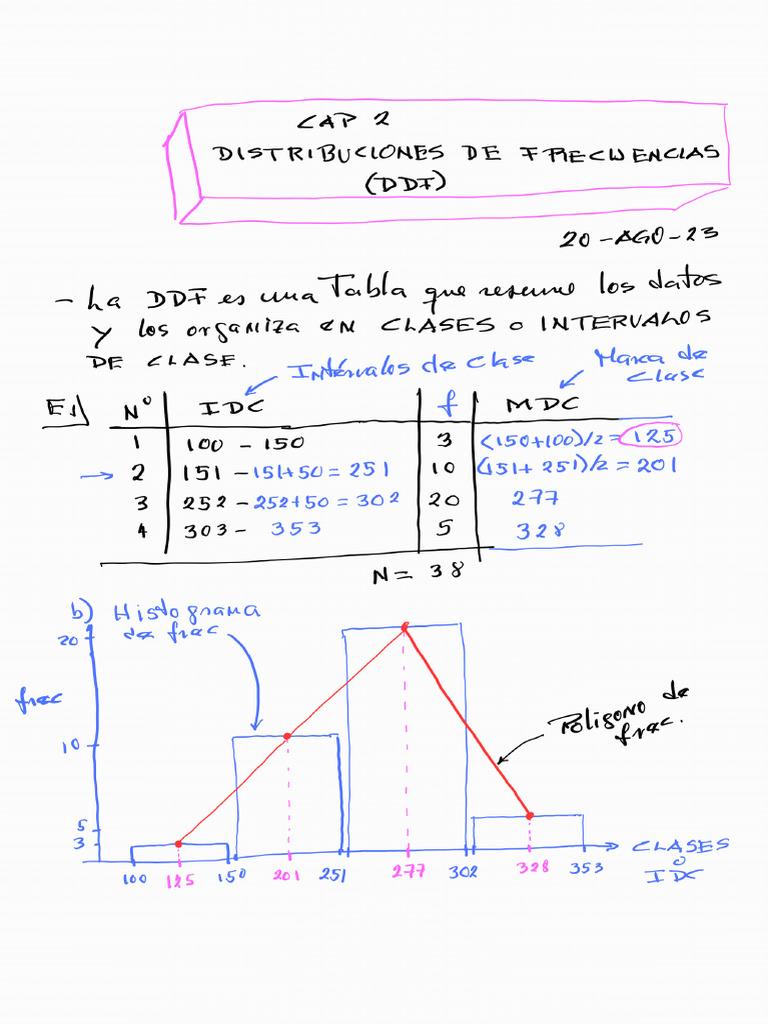 CAP 2
DISTRIBUCIONES DE FRECUENCIAS
(DDF)
20-AGO-23
- La DDF es una Tabla que resume los datos
y los organiza en CLASES o INTERVALOS
DE CLASE.
Intérvalos de Clase
Marca de
Clase
E1) N° IDC f MDC
1 100 - 150 3 (150+100)/2 = 125
2 151 - 151+50 = 251 10 (151+251)/2 = 201
3 252 - 252+50 = 302 20 277
4 303 - 353 5 328
N = 38
b) Histograma
de frec
20
frec
10
5
3
Poligono de
frec.
100 125 150 201 251 277 302 328 353
CLASES
o
IDC